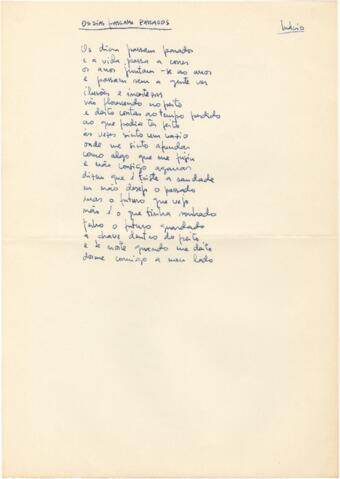 OS DIAS PASSAM PARADOS
Inácio
Os dias passam parados
e a vida passa a correr
os anos juntam-se aos anos
e passam sem a gente ver
ilusões e incertezas
vão florescendo no peito
e deito contas ao tempo perdido
ao que podia ter feito
às vezes sinto um vazio
onde me sinto afundar
como algo que me fugiu
e não consigo agarrar
dizem que é triste a saudade
eu não desejo o passado
mas o futuro que vejo
não é o que tinha sonhado
tenho o futuro guardado
a chave dentro do peito
e à noite quando me deito
dorme comigo a meu lado